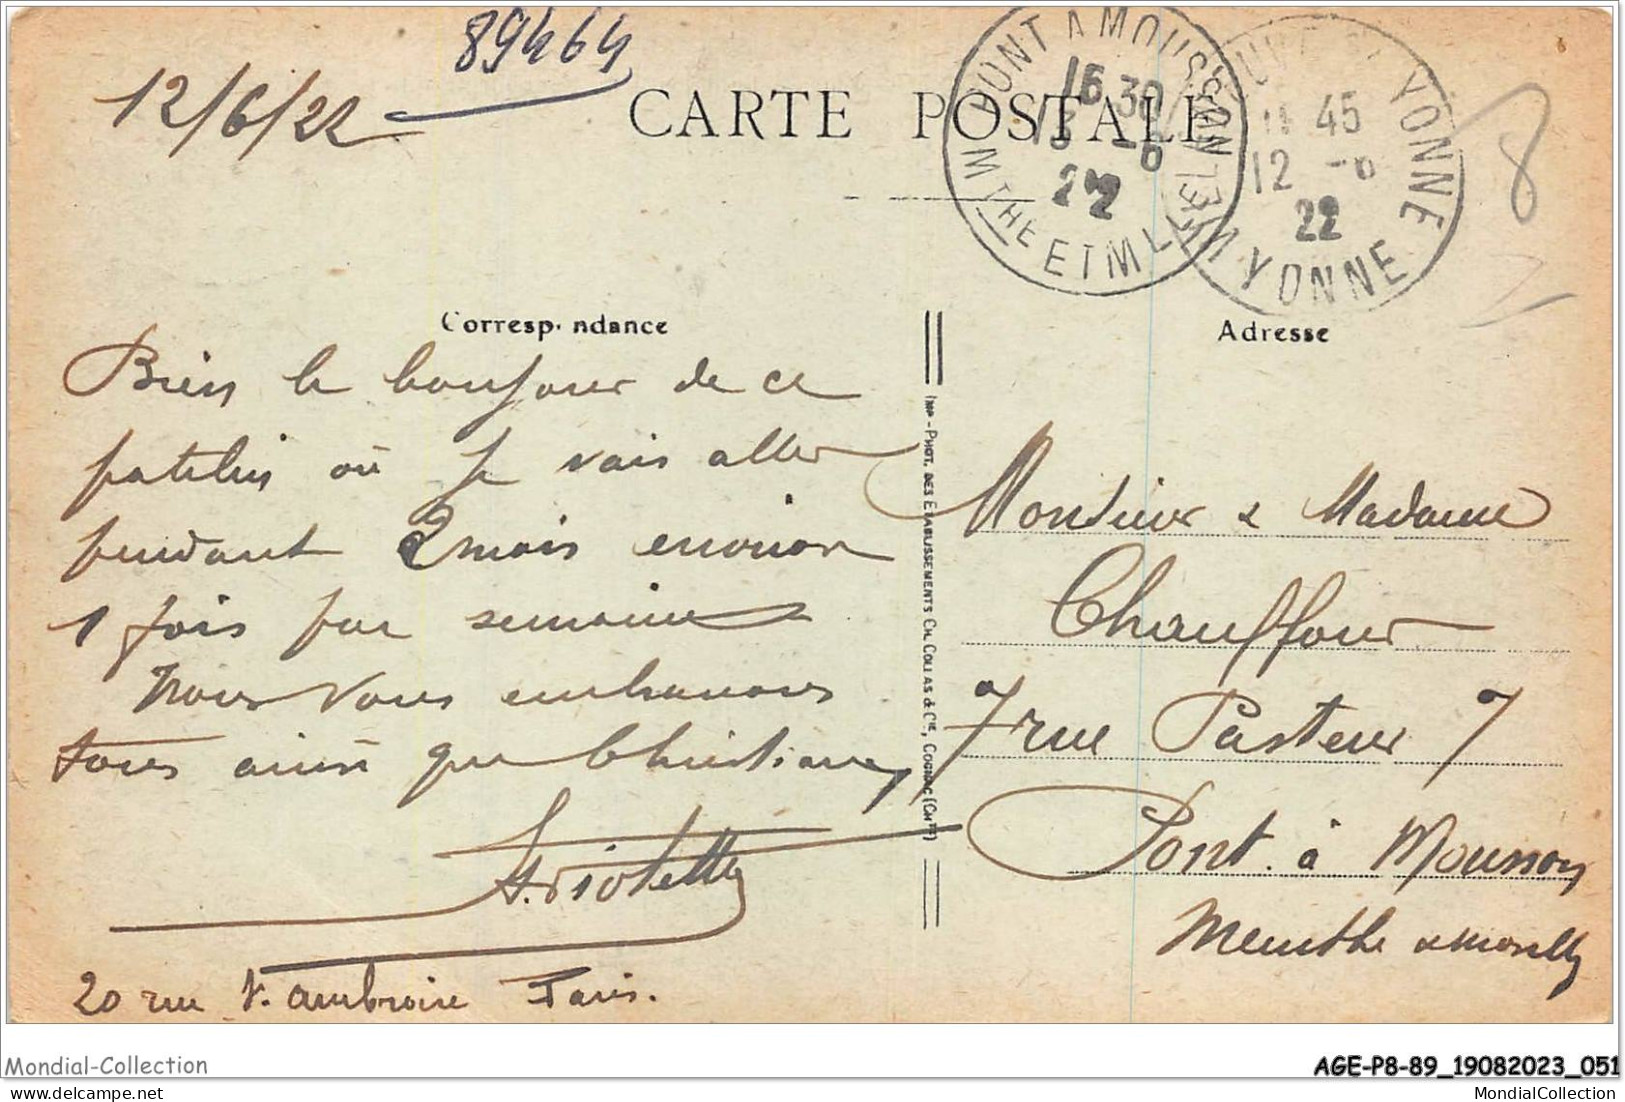 89464
12/6/22
CARTE POSTALE
PONT A MOUSSON
16 30
13 -6
22
MTHE ET MLLE
45
12 -6
22
YONNE
8
Correspondance
Adresse
Bien le bonjour de ce
patelin où je vais aller
pendant 2 mois environ
1 fois par semaine
Nous vous embrassons
tous ainsi que Christiane,
A. Violette
20 rue St. Ambroise Paris.
IMP-PHOT. DES ETABLISSEMENTS CH. COLLAS & Cie, COGNAC (Chte)
Monsieur & Madame
Chauffour
7 rue Pasteur 7
Pont. à Mousson
Meurthe & Moselle
Mondial-Collection
AGE-P8-89_19082023_051
MondialCollection